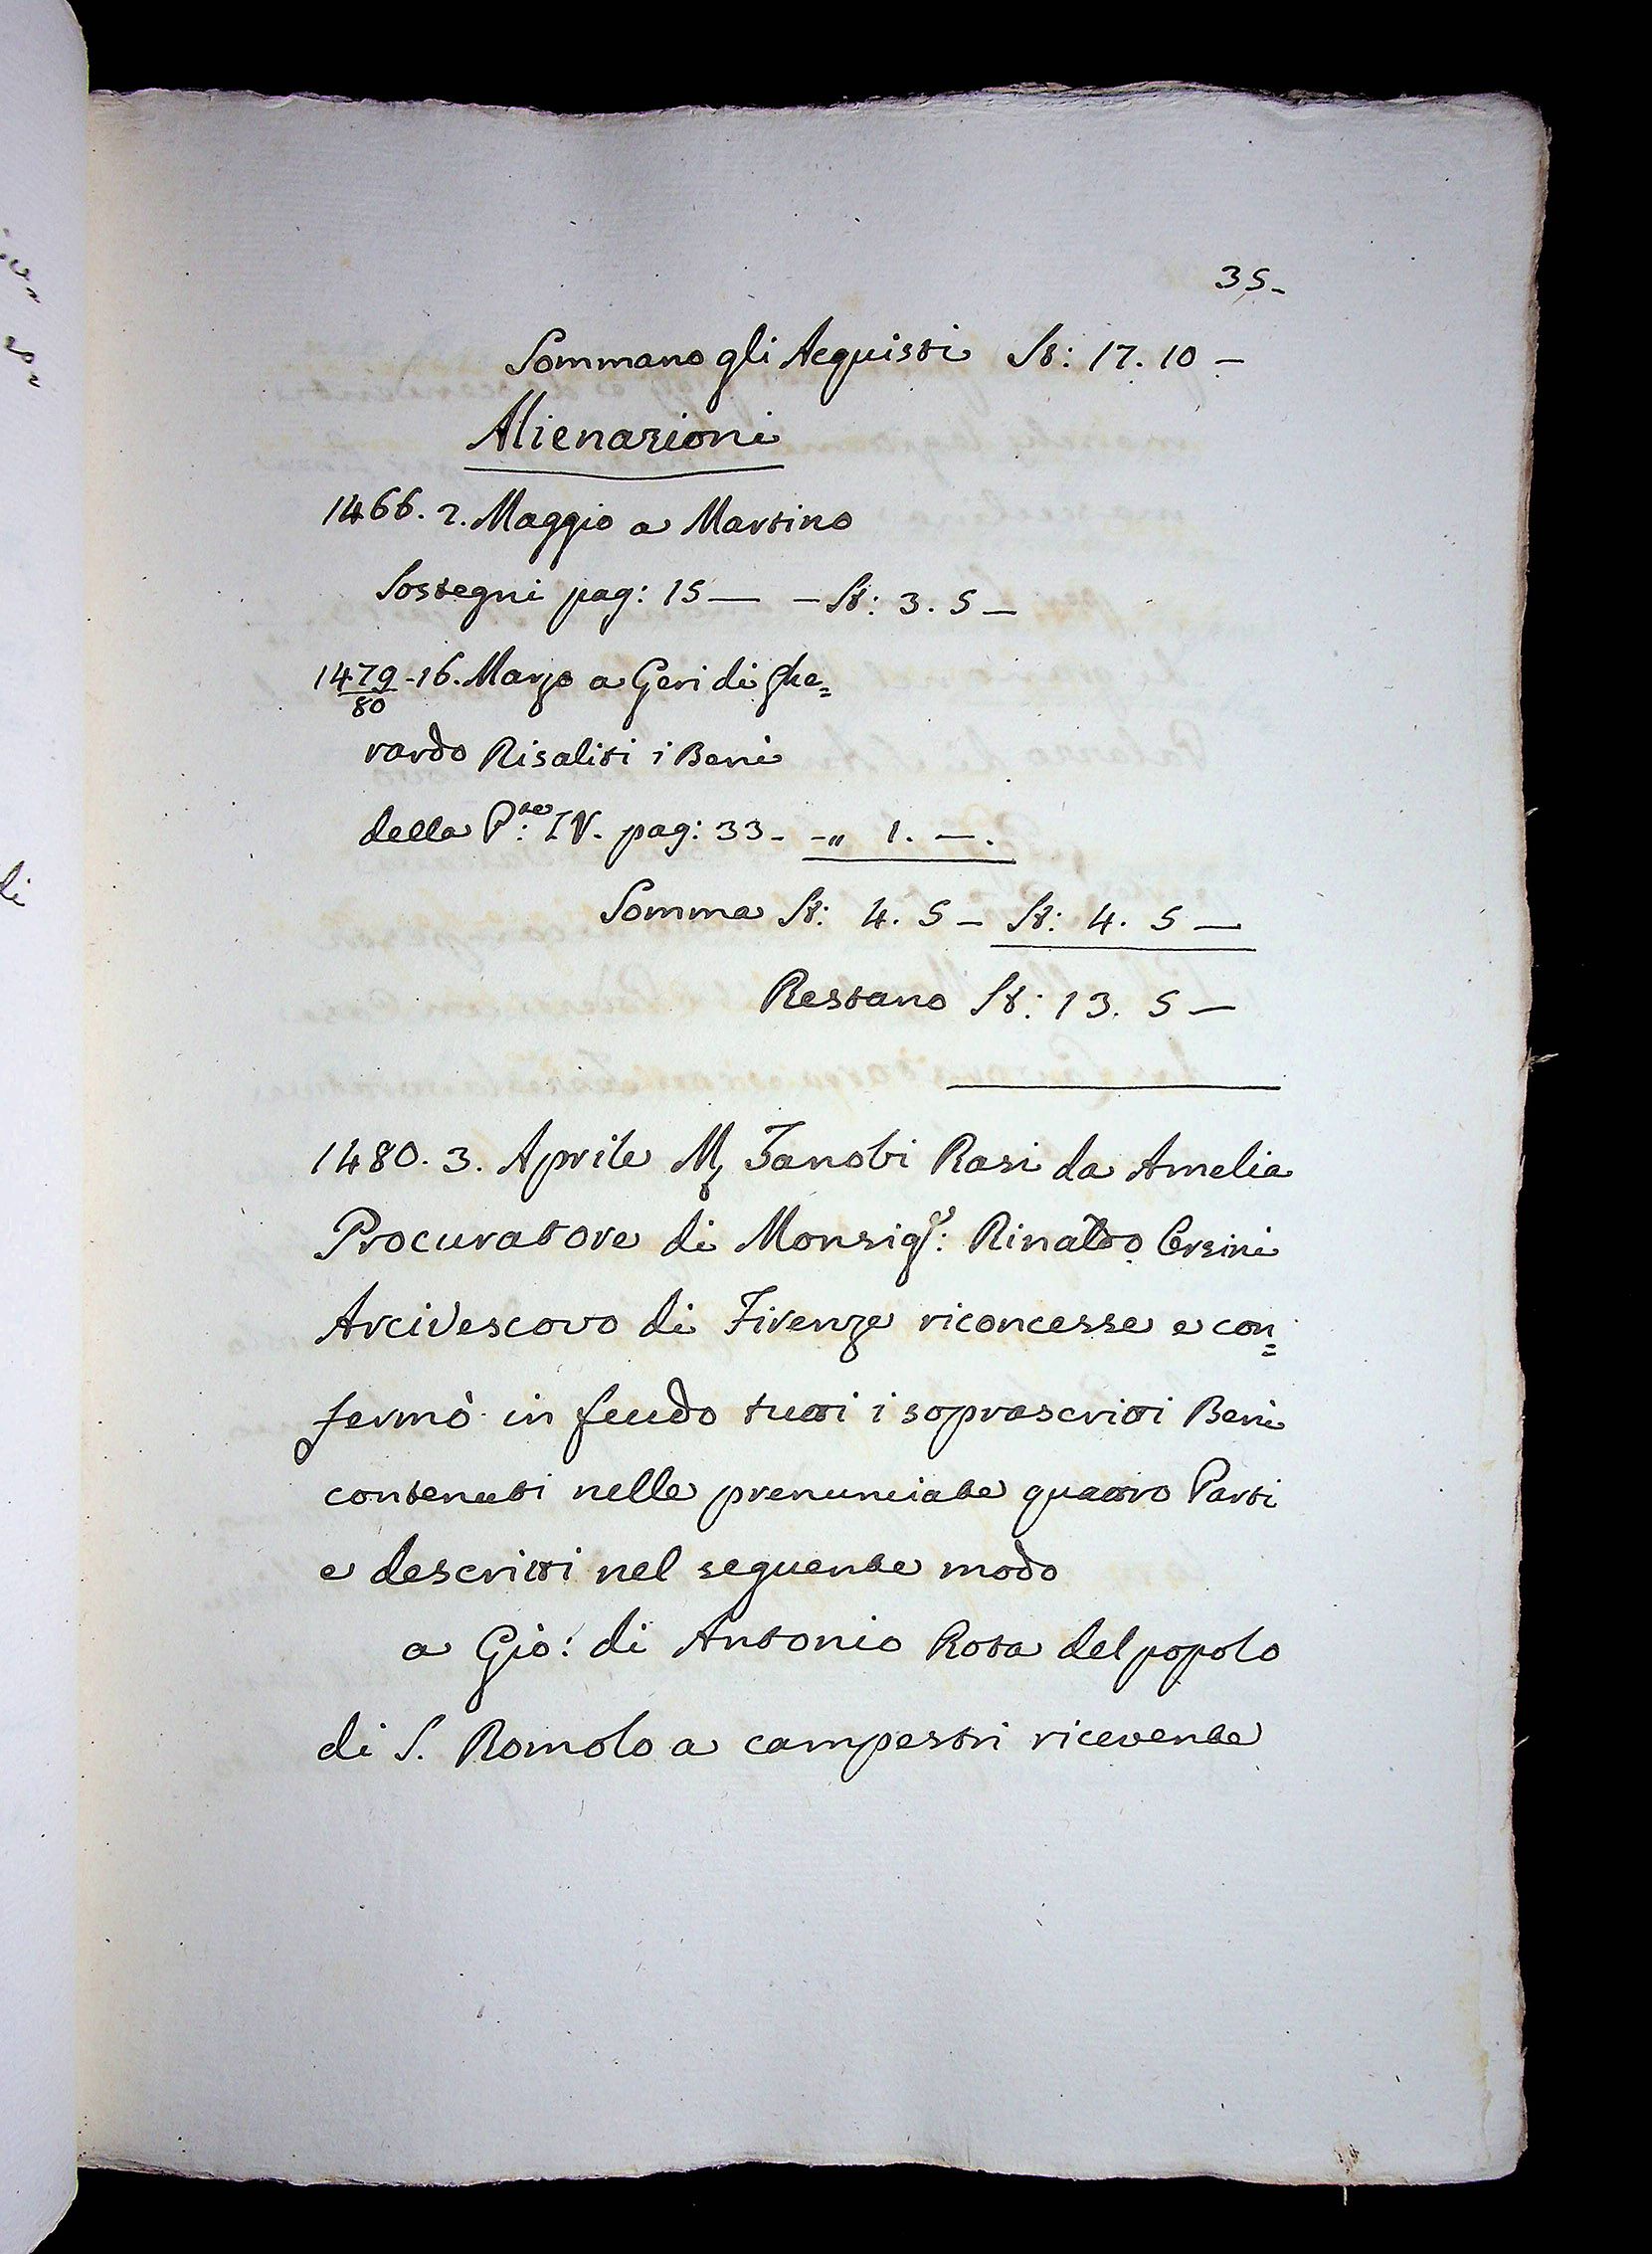 35-
Sommano gli Acquisti St: 17. 10 -
Alienazioni
1466. 2. Maggio a Martino
Sostegni pag: 15 — - St: 3. 5 -
1479/80 - 16. Marzo a Geri di Ghe=
rardo Risaliti i Beni
della P:te IV. pag: 33 - - „ 1. —.
Somma St: 4. 5 - St: 4. 5 —
Restano St: 13. 5 -
1480. 3. Aprile Zanobi Rasi da Amelia
Procuratore di Monsigr: Rinaldo Orsini
Arcivescovo di Firenze riconcesse e con=
fermò in feudo tutti i soprascritti Beni
contenuti nelle prenunciate quattro Parti
e descritti nel seguente modo
a Gio: di Antonio Rota del popolo
di S. Romolo a campestri ricevente